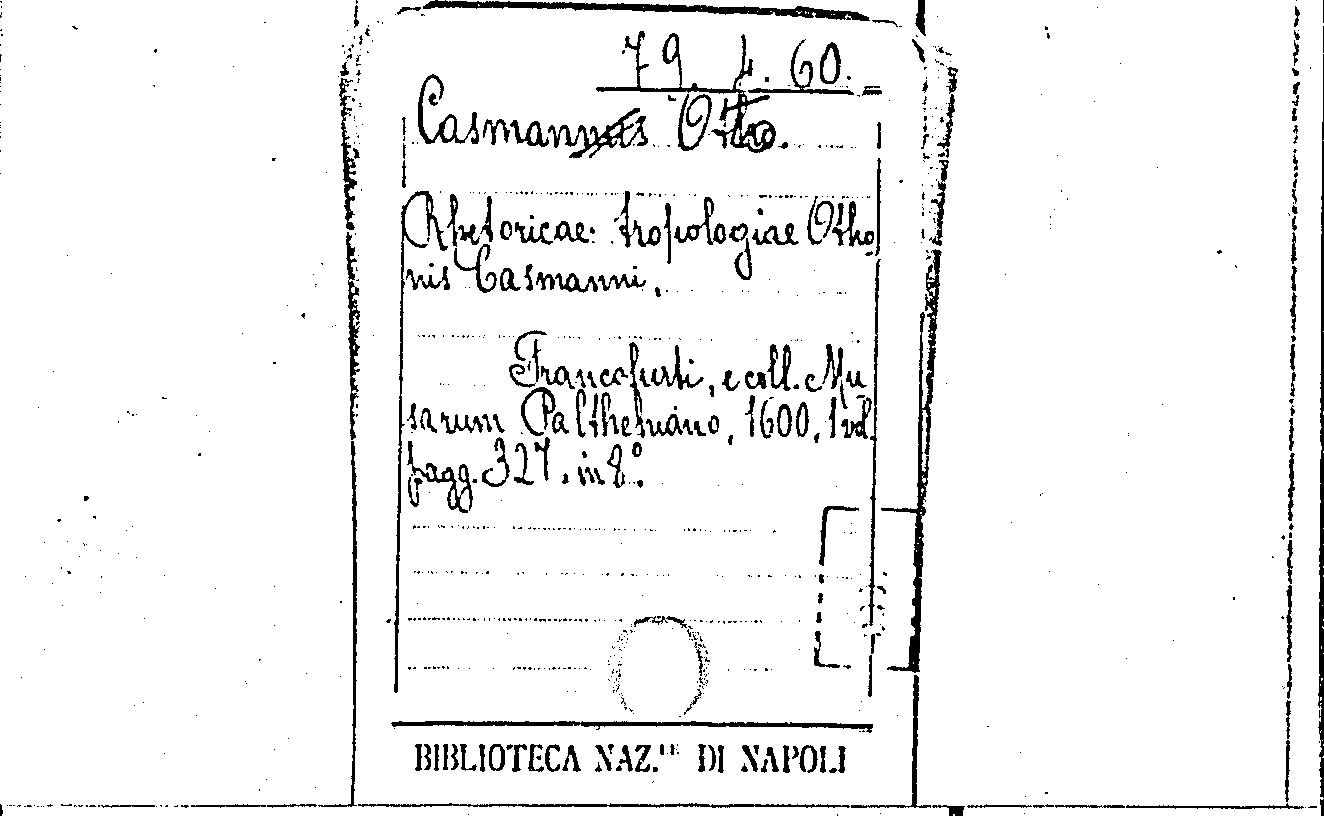 79. 4. 60.
Casmann Otto.
Rhetoricae tropologiae Otho
nis Casmanni.
Francofurti, e coll. Mu
sarum Paltheniano, 1600, 1 vol.
pagg. 327. in 8.°
BIBLIOTECA NAZ.LE DI NAPOLI